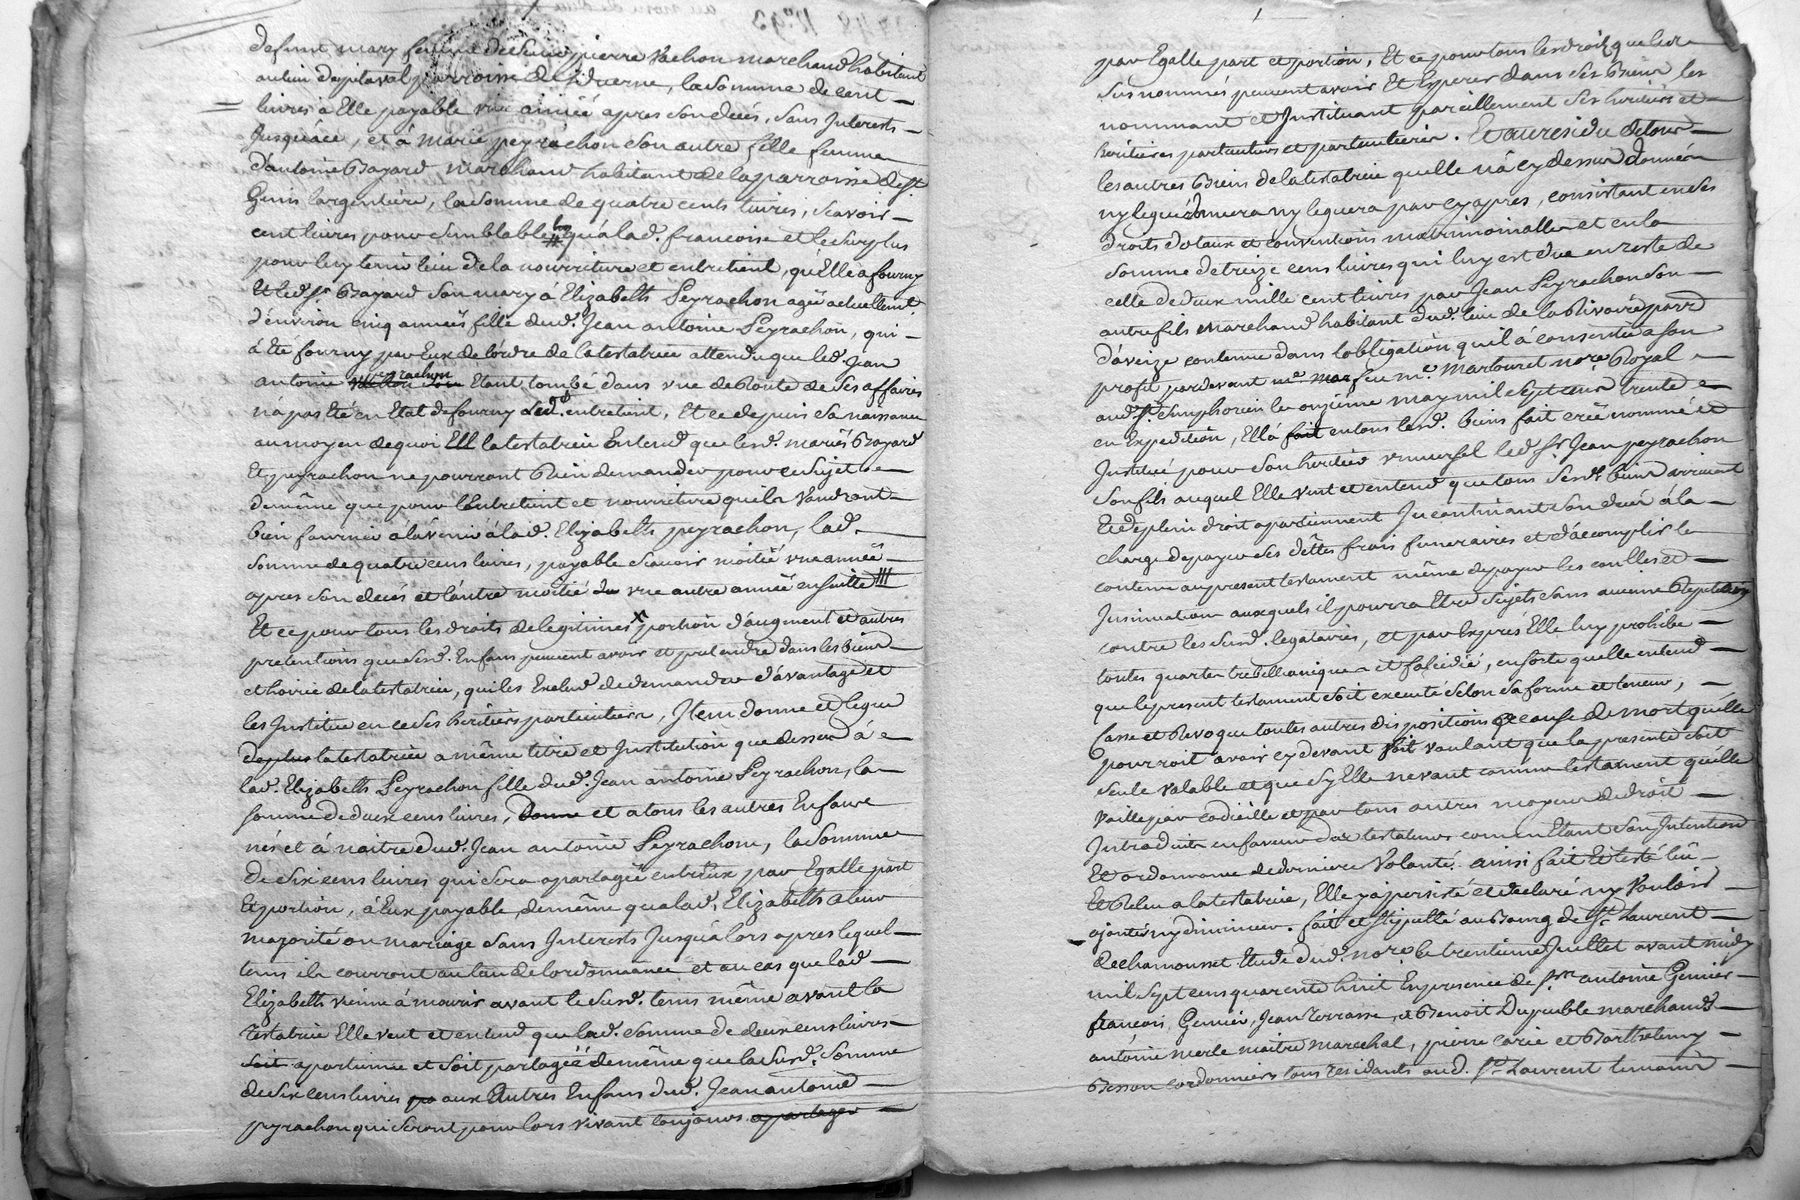 defunt mary femme de Sieur pierre Vachon marchand habitant
au lieu de pitaval parroisse de , la somme de cent
livres à Elle payable une année apres son decés, sans Interests
Jusquàce, et à marie peyrachon son autre fille femme
d'antoine Bayard marchand habitant de la parroisse de St
Genis largentiere, la somme de quatre cents livres, scavoir
cent livres pour semblable quà lad. francoise et le surplus
pour luy tenir lieu de la nourriture et entretient, qu'Elle a fourny
et led. sr Bayard son mary à Elizabeth Peyrachon agée actuellemt.
d'environ cinq années fille dud. Jean antoine Peyrachon, qui
à Eté fourny par Eux de l'ordre de la testatrice attendu que led. Jean
antoine peyrachon Etant tombé dans une deroute de ses affaires
n'a pas Eté en Etat de fournir led. entretient, Et ce depuis sa naissance
au moyen de quoi Ell la testatrice Entend que lesd. mariés Bayard
Et peyrachon ne pourront Rien demander pour ce sujet
de même que pour l'Entretient et nourriture qu'ils Voudront
bien fournir à lávenir à lad. Elizabeth peyrachon, lad.
somme de quatre cens livres, payable scavoir moitié une année
apres son decés et láutre moitié une autre année ensuitte
Et ce pour tous les droits de legitimes portion d'augment et autres
pretentions que sesd. Enfans peuvent avoir et pretendre dans les biens
et hoirie de la testatrice, qu'iles Exclud de demander d'avantage et
les Institue en ce ses heritiers particuliers, Item donne et legue
deplus la testatrice a même titre et Institution que dessus à
lad. Elizabeth Peyrachon fille dud. Jean antoine Peyrachon, la
somme de deux cens livres, Donne et a tous les autres Enfans
nés et à naitre dud. Jean antoine Peyrachon, la somme
de six cens livres qui sera apartagée entr'Eux par Egalle part
Et portion, à Eux payable, de même qua lad. Elizabeth a leur
majorité ou mariage sans Interests Jusquà lors apres lequel
tems ils courront au taux de lordonnance et au cas que lad.
Elizabeth vienne à mourir avant le susd. tems même avant la
testatrice Elle veut et entend que lad. somme de deux cens livres
soit apartienne et soit partagée de même que la susd. somme
de six cens livres aux Autres Enfans dud. Jean antoine
peyrachon qui seront pour lors vivant toujours apartager
par Egalle part et portion, Et ce pour tous les droits que les
susnommés peuvent avoir Et Esperer dans ses Biens les
nommant et Instituant pareillement ses heritiers et
heritieres particuliers et particulieres. Et au residu de tous
les autres Biens de la testatrice quelle n'à cy dessus donnés
ny legués donnera ny leguera par cy apres, consistant en ses
droits dotaux et conventions matrimonialles et en la
somme de treize cens livres qui luy est due en reste de
celle de deux mille cent livres par Jean Peyrachon son
autre fils marchand habitant dud. lieu de la Rivoire parr.
d'aveize contenue dans l'obligation qu'il à consentie a son
profit pardevant feu me. Marbouret nore. Royal
aud. st Simphorien le onzieme may mil sept cens trente
en Expedition, Ell à fait en tous lesd. biens fait créé nommé et
Institué pour son heritier universel led. sr Jean peyrachon
son fils auquel Elle veut et entend que tous sesd. biens arrivent
Et de plein droit apartiennent Incontinant son decés à la
charge de payer ses dettes frais funeraires et d'accomplir le
contenu au present testament même de payer les
Insinuation auxquels il pourra Etre sujets sans aucune Repetition
contre les susd. legataires, et par Exprés Elle luy prohibe
toutes quartes trebellianique et falcidie, ensorte quelle entend
que le present testament soit executé selon sa forme et teneur,
Casse et Revoque toutes autres dispositions à cause de mort quélle
pourroit avoir cy devant fait voulant que la presente soit
seule valable et que sy Elle ne vaut comme testament quélle
Vaille par codicille et par tous autres moyens de droit
Introduits en faveur des testateurs comme Etant son Intention
Et ordonnance de derniere Volonté. ainsi fait Et testé lû
Et Relu a la testatrice, Elle y a persisté et declaré ny Vouloir
ajouter ny diminuer. fait et stipullé au Bourg de St. Laurent
de chamousset Etude dud. nore. le trentieme Juillet avant midy
mil sept cens quarente huit En presence de srs. antoine Genier
francois Genier, Jean Terrasse, et Benoit Dupeuble marchands
antoine merle maitre marechal, pierre carié et Barthelemy
Besson cordonniers tous residants aud. St. Laurent temoins